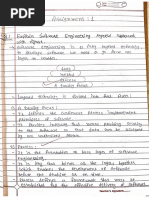 Assignment : 1
Explain Software Engineering layered approach
with figure.
Software Engineering is a fully layered technology,
to develop software we need to go from one
layer to another.
tools
method
process
A quality focus
Layered technology is divided into four parts:
1) A quality focus:
It defines the continuous process improvement
principles of software.
It provides integrity that means providing security
to the software so that data can be accessed by
only an authorized
2) Process:
It is the foundation or base layer of software
Engineering.
It is key that binds all the layers together
which enables the development of software
before the deadline or on time.
Process defines a framework that must be
established for the effective delivery of software
Teacher's Signature